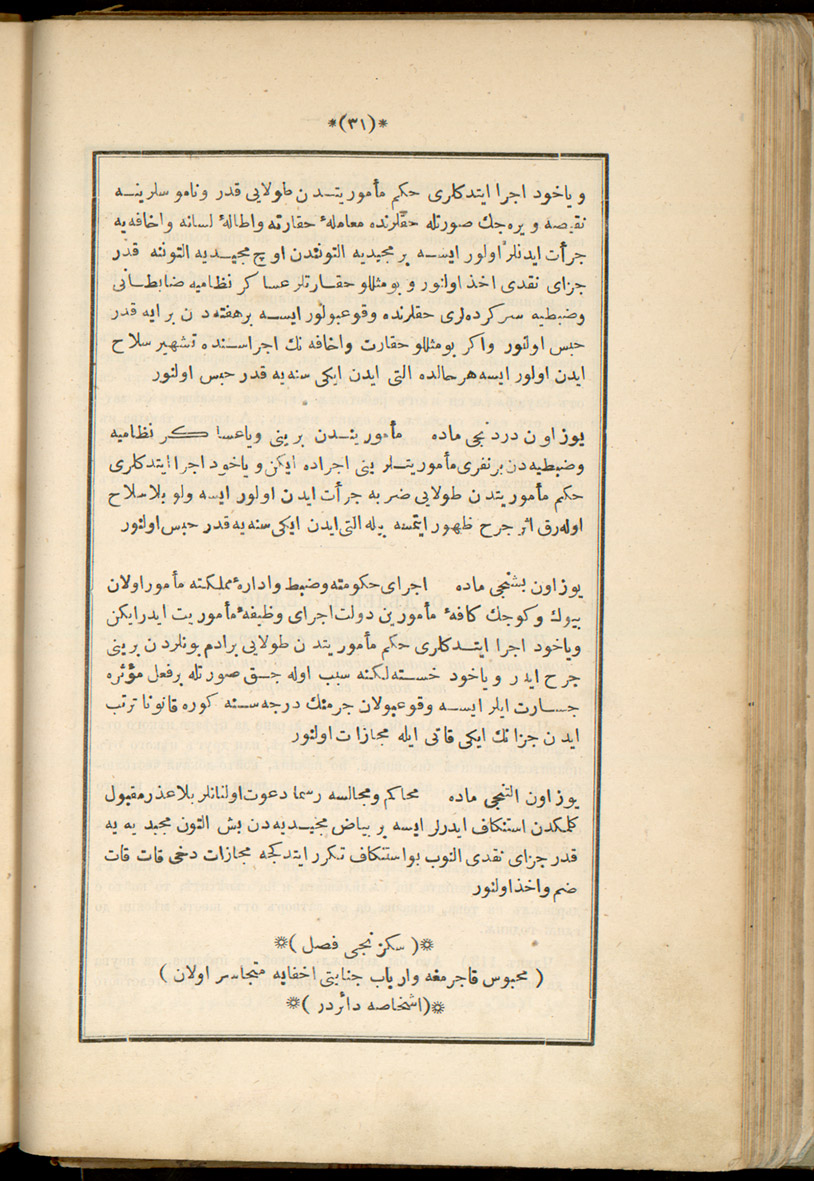 *(٣١)*
و ياخود اجرا ايتدكارى حكم مأموريتدن طولايى قدر و ناموسلرينه
نقيصه ويره‌جك صورتله حقلرنده معاملهٔ حقارته واطالهٔ لسانه واخافه‌يه
جرأت ايدنلر اولور ايسه بر مجيديه التونندن اوچ مجيديه التوننه قدر
جزاى نقدى اخذ اولنور و بومثللو حقارتلر عساكر نظاميه ضابطانى
وضبطيه سركرده‌لرى حقلرنده وقوعبولور ايسه بر هفته‌دن بر ايه قدر
حبس اولنور واكر بومثللو حقارت واخافه نك اجراسنده تشهير سلاح
ايدن اولور ايسه هر حالده التى ايدن ايكى سنه‌يه قدر حبس اولنور
يوز اون دردنجى ماده مأموريتدن برينى وياعساكر نظاميه
وضبطيه‌دن برنفرى مأموريتلرينى اجراده ايكن و ياخود اجرا ايتدكلرى
حكم مأموريتدن طولايى ضربه جرأت ايدن اولور ايسه ولو بلاسلاح
اوله‌رق اثر جرح ظهور ايتمسه بيله التى ايدن ايكى سنه‌يه قدر حبس اولنور
يوز اون بشنجى ماده اجراى حكومته وضبط وادارهٔ مملكته مأمور اولان
بيوك وكوجك كافهٔ مأمورين دولت اجراى وظيفهٔ مأموريت ايدرايكن
وياخود اجرا ايتدكارى حكم مأموريتدن طولايى برادم بونلردن برينى
جرح ايدر و ياخود خسته‌لكنه سبب اوله‌جق صورتله برفعل مؤثره
جسارت ايلر ايسه وقوعبولان جرمنك درجه‌سنه كوره قانونا ترتب
ايدن جزانك ايكى قاتى ايله مجازات اولنور
يوز اون التنجى ماده محاكم ومجالسه رسما دعوت اولنانلر بلاعذر مقبول
كلمكدن استنكاف ايدرلر ايسه بر بياض مجيديه‌دن بش التون مجيديه‌يه
قدر جزاى نقدى النوب بواستنكاف تكرر ايتدكجه مجازات دخى قات قات
ضم واخذ اولنور
*( سكزنجى فصل )*
( محبوس قاجرمغه وارباب جنايتى اخفايه متجاسر اولان )
*(اشخاصه دائردر )*